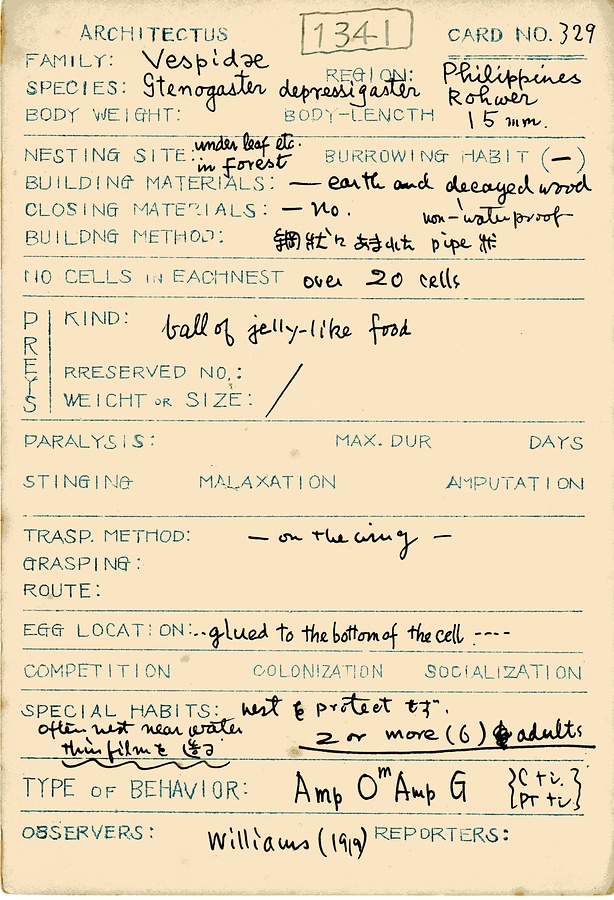 ARCHITECTUS 1341 CARD NO. 329
FAMILY: Vespidae REGION: Philippines
SPECIES: Stenogaster depressigaster Rohwer
BODY WEIGHT: BODY-LENGTH 15 mm.
NESTING SITE: under leaf etc. in forest BURROWING HABIT (—)
BUILDING MATERIALS: — earth and decayed wood
CLOSING MATERIALS: — No. non-waterproof
BUILDNG METHOD: pipe
NO CELLS IN EACHNEST over 20 cells
PREYS
KIND: ball of jelly-like food
RRESERVED NO.:
WEICHT OR SIZE: /
PARALYSIS: MAX. DUR DAYS
STINGING MALAXATION AMPUTATION
TRASP. METHOD: — on the wing —
GRASPING:
ROUTE:
EGG LOCATION: ..glued to the bottom of the cell ----
COMPETITION COLONIZATION SOCIALIZATION
SPECIAL HABITS: nest を protect せず.
often nest near water
thin film を 2 or more (6) adults
TYPE OF BEHAVIOR: Amp OᵐAmp G
OBSERVERS: Williams (1919) REPORTERS: